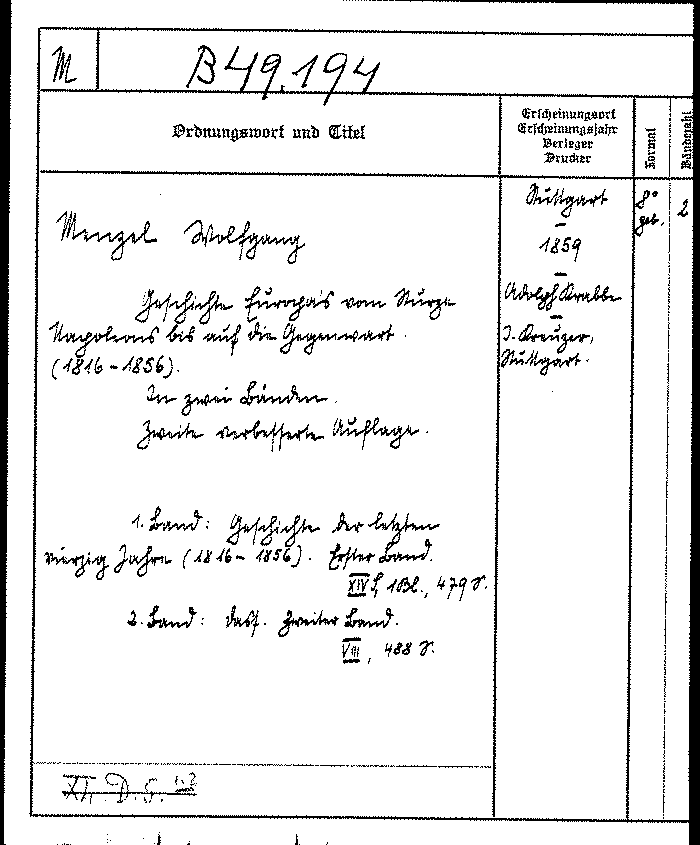 M
B49.194
Ordnungswort und Titel
Erscheinungsort
Erscheinungsjahr
Verleger
Drucker
Format
Bändezahl
Menzel Wolfgang
Stuttgart
–
1859
–
Adolph Krabbe
–
J. Kreuzer,
Stuttgart.
8°
geb.
2
Geschichte Europas vom Sturze
Napoleons bis auf die Gegenwart.
(1816 - 1856).
In zwei Bänden.
Zweite verbesserte Auflage.
1. Band: Geschichte der letzten
vierzig Jahre (1816 - 1856). Erster Band.
XIV S, 1Bl., 479 S.
2. Band: dass. Zweiter Band.
VIII, 488 S.
D. 5. 1.2